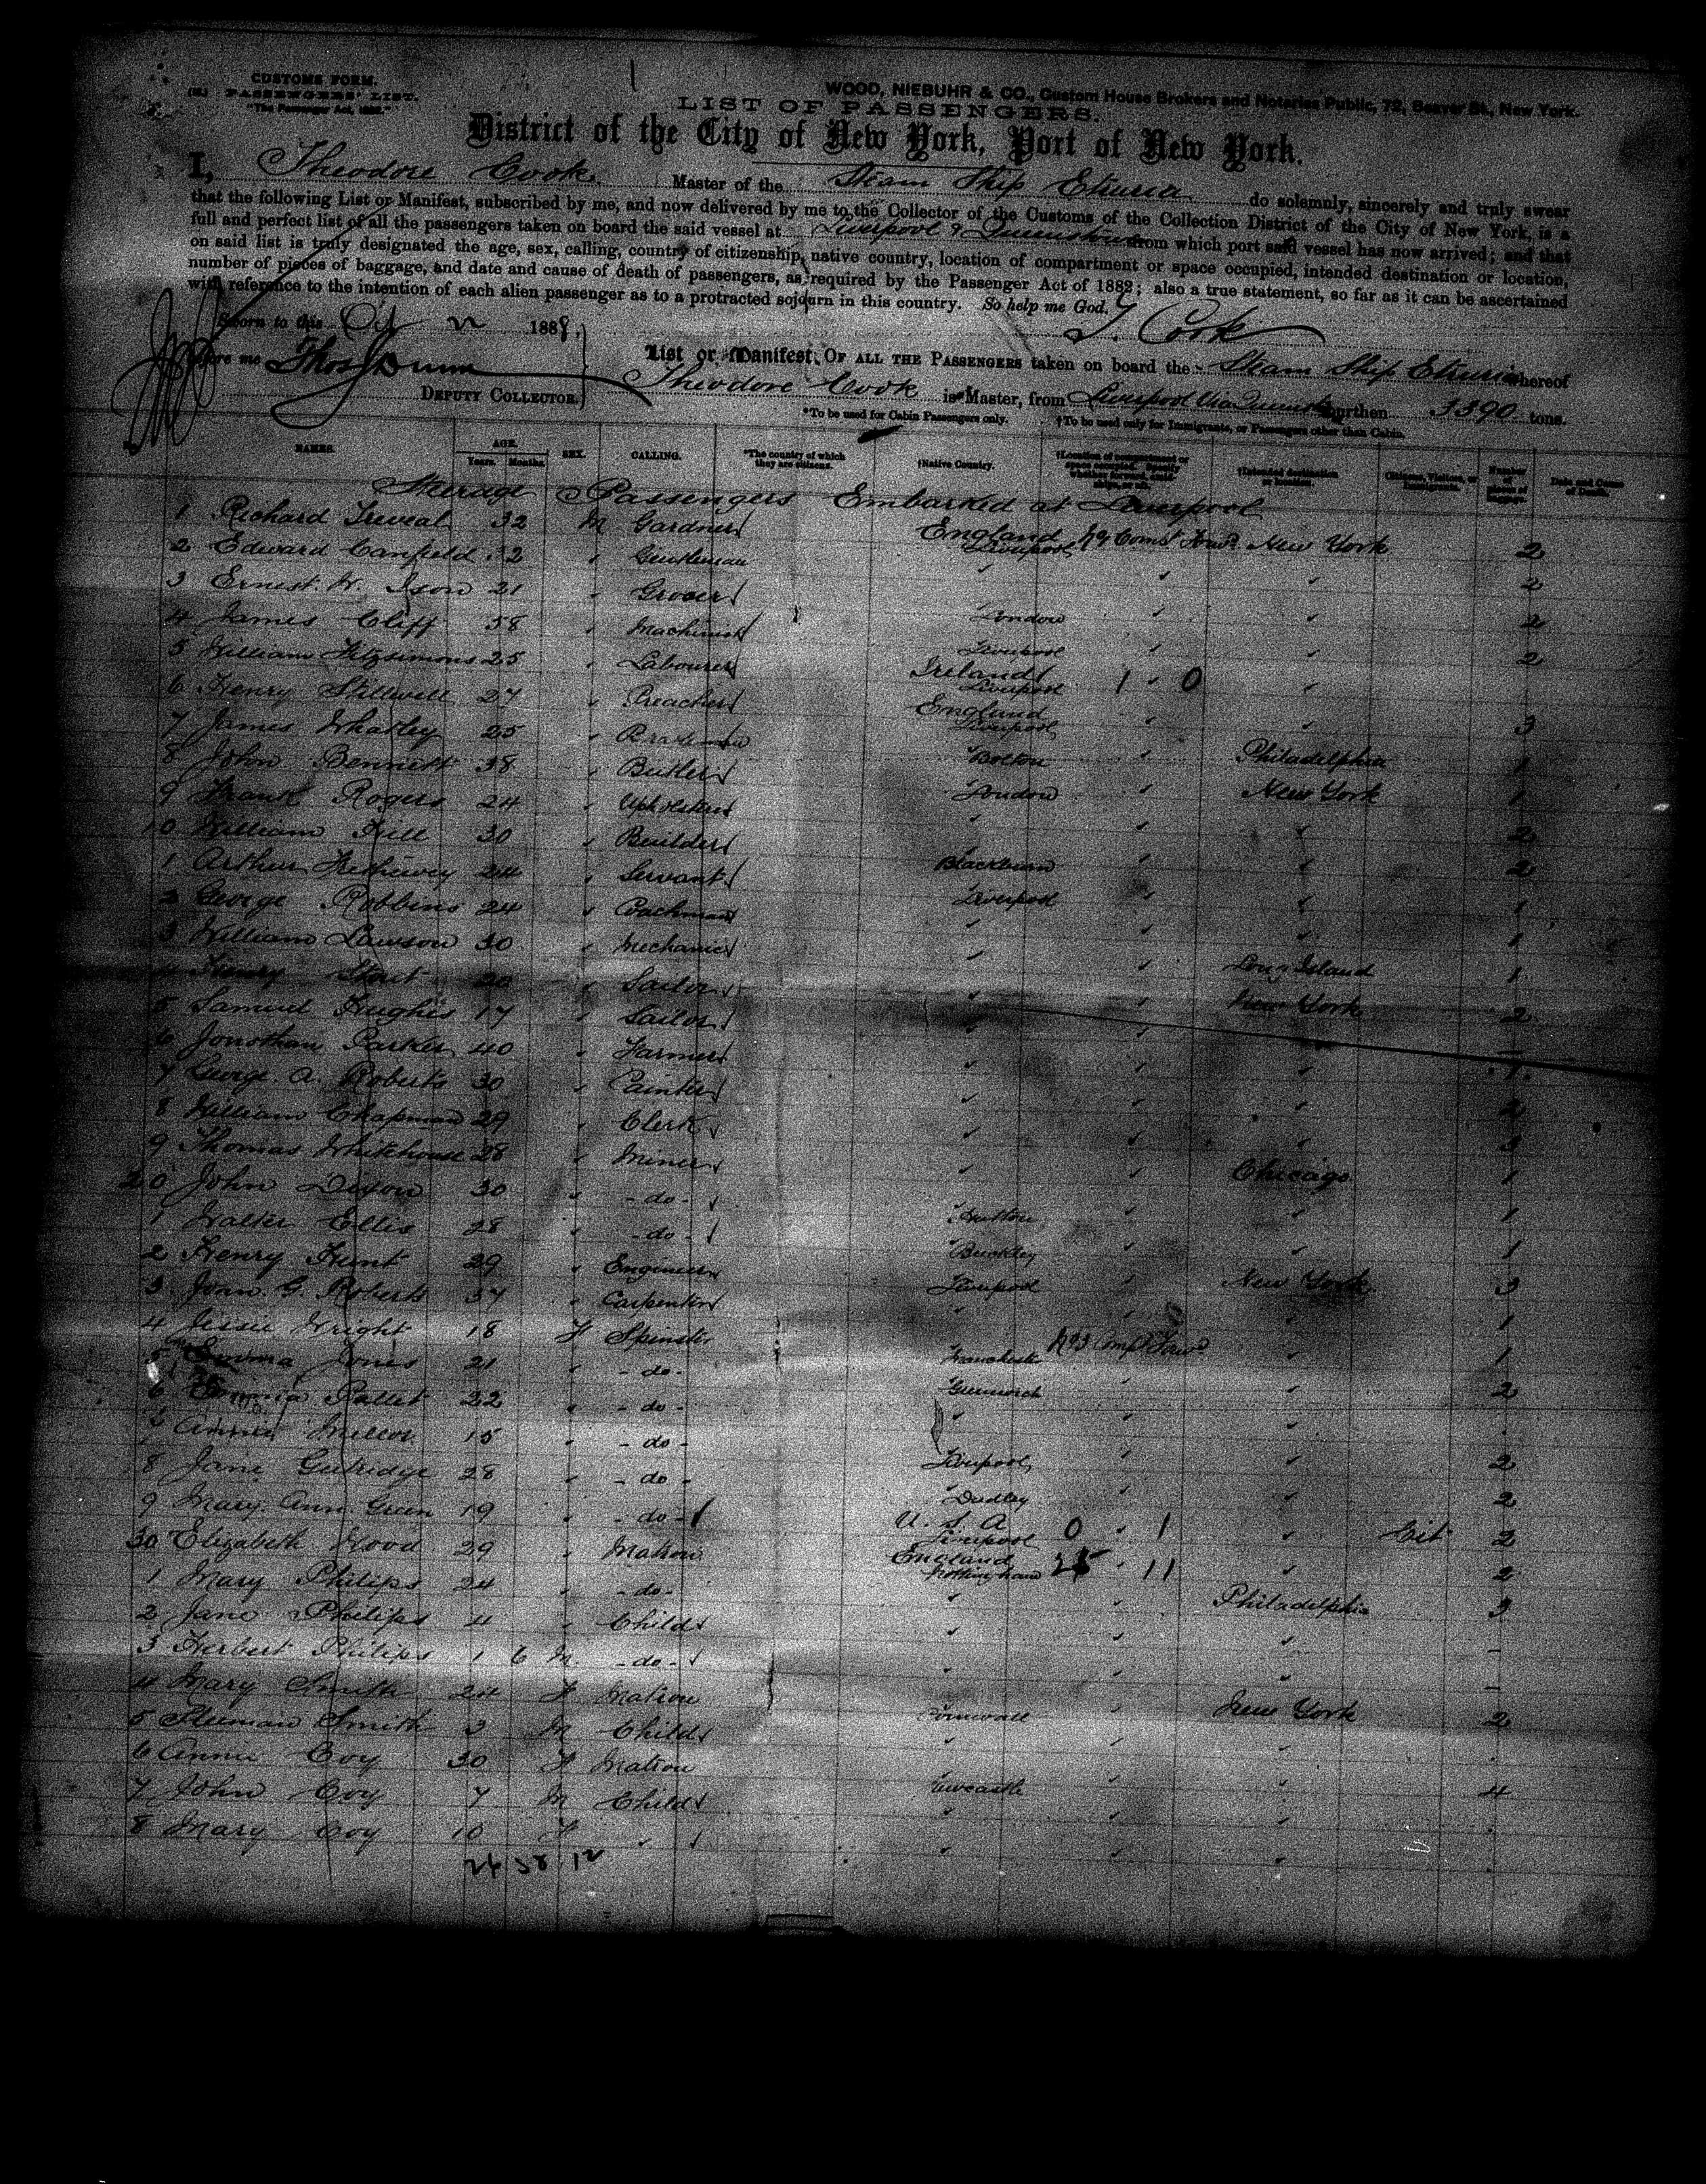 CUSTOMS FORM.
PASSENGERS' LIST.
"The Passenger Act, 1882."
WOOD, NIEBUHR & CO., Custom House Brokers and Notaries Public, 72, Beaver St., New York.
LIST OF PASSENGERS.
District of the City of New York, Port of New York.
I, Theodore Cook Master of the Steam Ship Etruria do solemnly, sincerely and truly swear
that the following List or Manifest, subscribed by me, and now delivered by me to the Collector of the Customs of the Collection District of the City of New York, is a
full and perfect list of all the passengers taken on board the said vessel at Liverpool & Queenstown from which port said vessel has now arrived; and that
on said list is truly designated the age, sex, calling, country of citizenship, native country, location of compartment or space occupied, intended destination or location,
number of pieces of baggage, and date and cause of death of passengers, as required by the Passenger Act of 1882; also a true statement, so far as it can be ascertained
with reference to the intention of each alien passenger as to a protracted sojourn in this country. So help me God.
Sworn to this Oct 22 1888
T. Cook
before me Thos Dunn
DEPUTY COLLECTOR.
List or Manifest, OF ALL THE PASSENGERS taken on board the Steam Ship Etruria whereof
Theodore Cook is Master, from Liverpool via burthen 3390 tons.
*To be used for Cabin Passengers only. †To be used only for Immigrants, or Passengers other than Cabin.
NAMES. AGE. Years. Months. SEX. CALLING. *The country of which they are citizens. †Native Country. †Location of compartment or space occupied. †Intended destination or location. Citizens, Visitors, or Immigrants. Number of pieces of baggage. Date and Cause of Death.
Steerage Passengers Embarked at Liverpool
1 Richard Treveal 32 M Gardner England Liverpool New York 2
2 Edward Canfield 32 " Gentleman " " " 2
3 Ernest. W. Ison 21 " Grocer London " " 2
4 James Cliff 58 " Machinist Liverpool " " 2
5 William Fitzsimons 25 " Labourer Ireland Liverpool 1 " 0 "
6 Henry Stillwell 27 " Preacher England Liverpool " " 3
7 James Whatley 25 " Bolton " Philadelphia 1
8 John Bennett 38 " Butler London " New York 1
9 Frank Rogers 24 " Upholsterer " " " 2
10 William Hill 30 " Builder Blackburn " " 2
1 Arthur 24 " Servant Liverpool " " 1
2 George Robbins 24 " Coachman " " " 1
3 William Lawson 30 " Mechanic " " Long Island 1
4 Henry Stout 20 " Sailor " " New York 2
5 Samuel Hughes 17 " Sailor " " " -
6 Jonathan Parker 40 " Farmer " " " 1
7 George. A. Roberts 30 " Painter " " " 2
8 William Chapman 29 " Clerk " " " 3
9 Thomas Whitehouse 28 " Miner " " Chicago 1
20 John Dixon 30 " - do - " " 1
1 Walter Ellis 28 " - do - Buckley " " 1
2 Henry Hunt 29 " Engineer Liverpool " New York 3
3 John G. Roberts 37 " Carpenter " " " 1
4 Jessie Wright 18 F Spinster Manchester " 1
5 Jones 21 " - do - Greenwich " " 2
6 Pallet 22 " - do - " " " .
7 Annie 15 " - do - Liverpool " " 2
8 Jane Gutridge 28 " - do - Dudley " " 2
9 Mary. Ann. Green 19 " - do - U. S. A Liverpool 0 " 1 " 2
30 Elizabeth Wood 29 " Matron England Nottingham " 11 " 2
1 Mary Philips 24 " - do - " " Philadelphia 3
2 Jane Philips 4 " Child " " " -
3 Herbert Philips 1 6 M. - do - " " " -
4 Mary Smith 24 F Matron Cornwall " New York 2
5 Smith 3 M Child " " " .
6 Annie Coy 30 F Matron Newcastle " " 4
7 John Coy 7 M Child " " " .
8 Mary Coy 10 F " " " " .